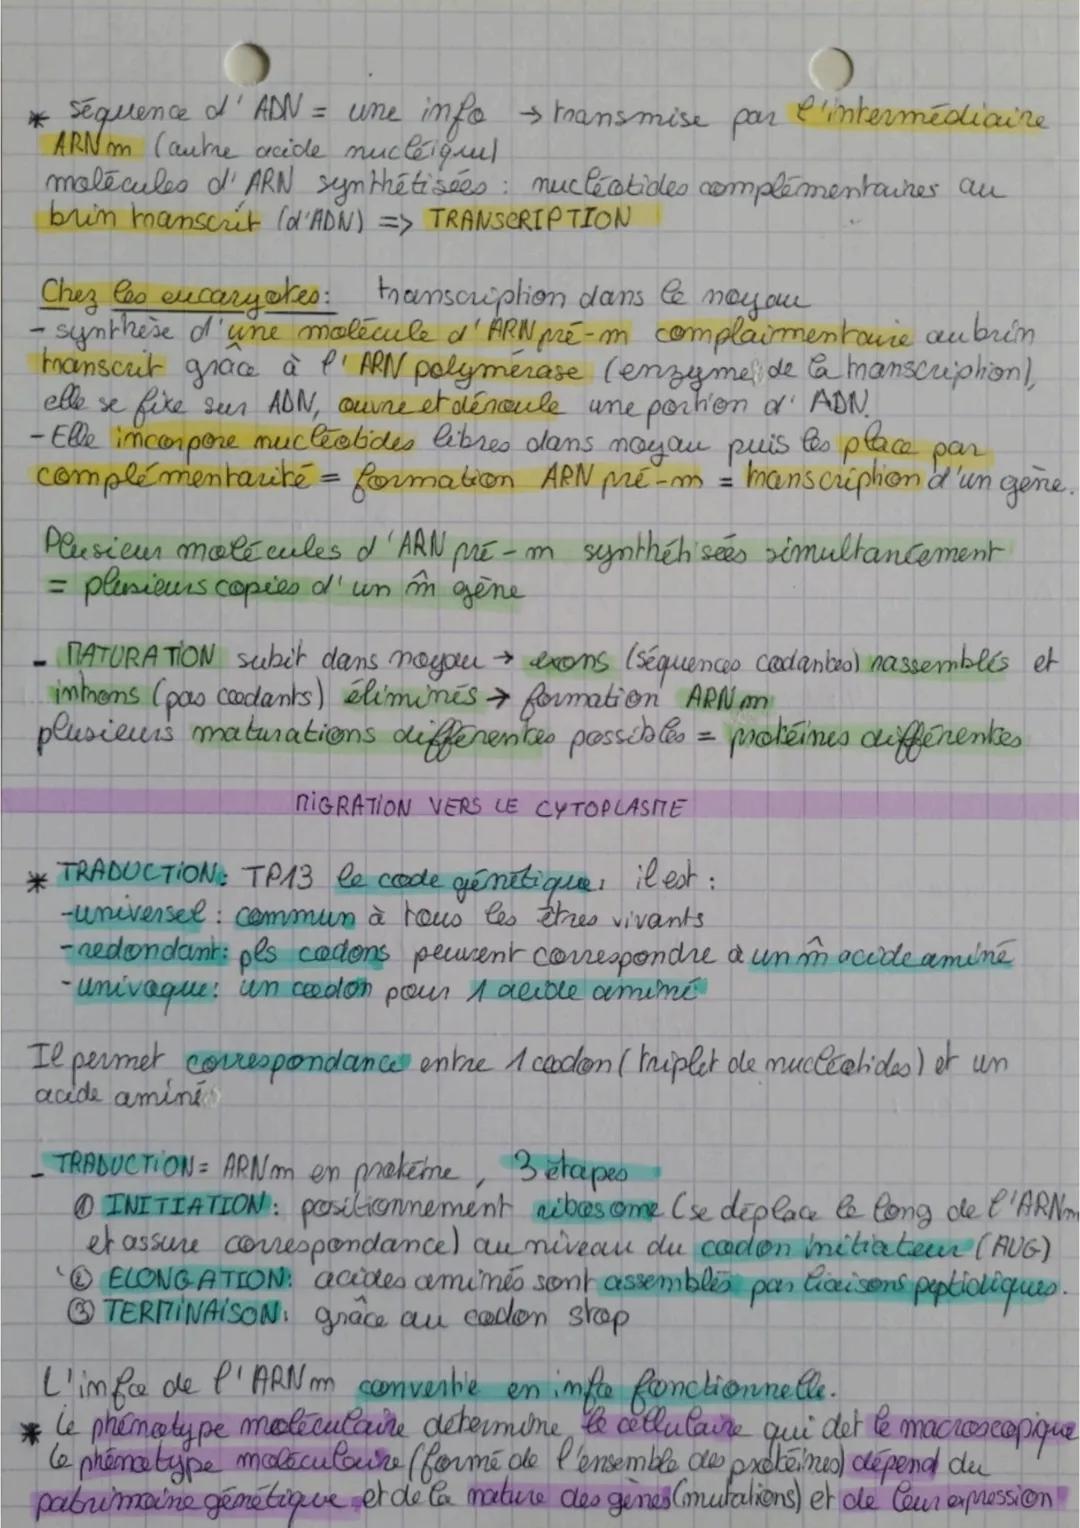 * séquence d'ADN = une info → transmise par l'intermédiaire
ARNm (autre acide nucléique)
molécules d'ARN synthétisées : nucléotides complémentaires au
brin transcrit (d'ADN) => TRANSCRIPTION
Chez les eucaryotes: transcription dans le noyau
- synthèse d'une molécule d'ARN pré-m complaimentaire au brin
transcrit grâce à l'ARN polymérase (enzyme de la transcription),
elle se fixe sur ADN, ouvre et déroule une portion d'ADN.
- Elle incorpore nucléotides libres dans noyau puis les place par
complémentarité = formation ARN pré-m = transcription d'un gène.
Plusieur molécules d'ARN pré-m synthétisées simultanément
= plusieurs copies d'un m̂ gène
- MATURATION subit dans noyau → exons (séquences codantes) rassemblés et
introns (pas codants) éliminés → formation ARNm
plusieurs maturations différentes possibles = protéines différentes
MIGRATION VERS LE CYTOPLASME
* TRADUCTION: TP13 le code génétique, il est :
-universel : commun à tous les êtres vivants
-redondant: pls codons peuvent correspondre à un m̂ acide aminé
-univoque: un codon pour 1 acide aminé
Il permet correspondance entre 1 codon (triplet de nucléotides) et un
acide aminé
- TRADUCTION = ARNm en protéine, 3 étapes
① INITIATION: positionnement ribosome (se déplace le long de l'ARNm
et assure correspondance) au niveau du codon initiateur (AUG)
② ELONGATION: acides aminés sont assemblés par liaisons peptidiques.
③ TERMINAISON: grâce au codon stop
L'info de l'ARNm convertie en info fonctionnelle.
* le phénotype moléculaire détermine le cellulaire qui det le macroscopique
le phénotype moléculaire (formé de l'ensemble des protéines) dépend du
patrimoine génétique et de la nature des gènes (mutations) et de leur expression